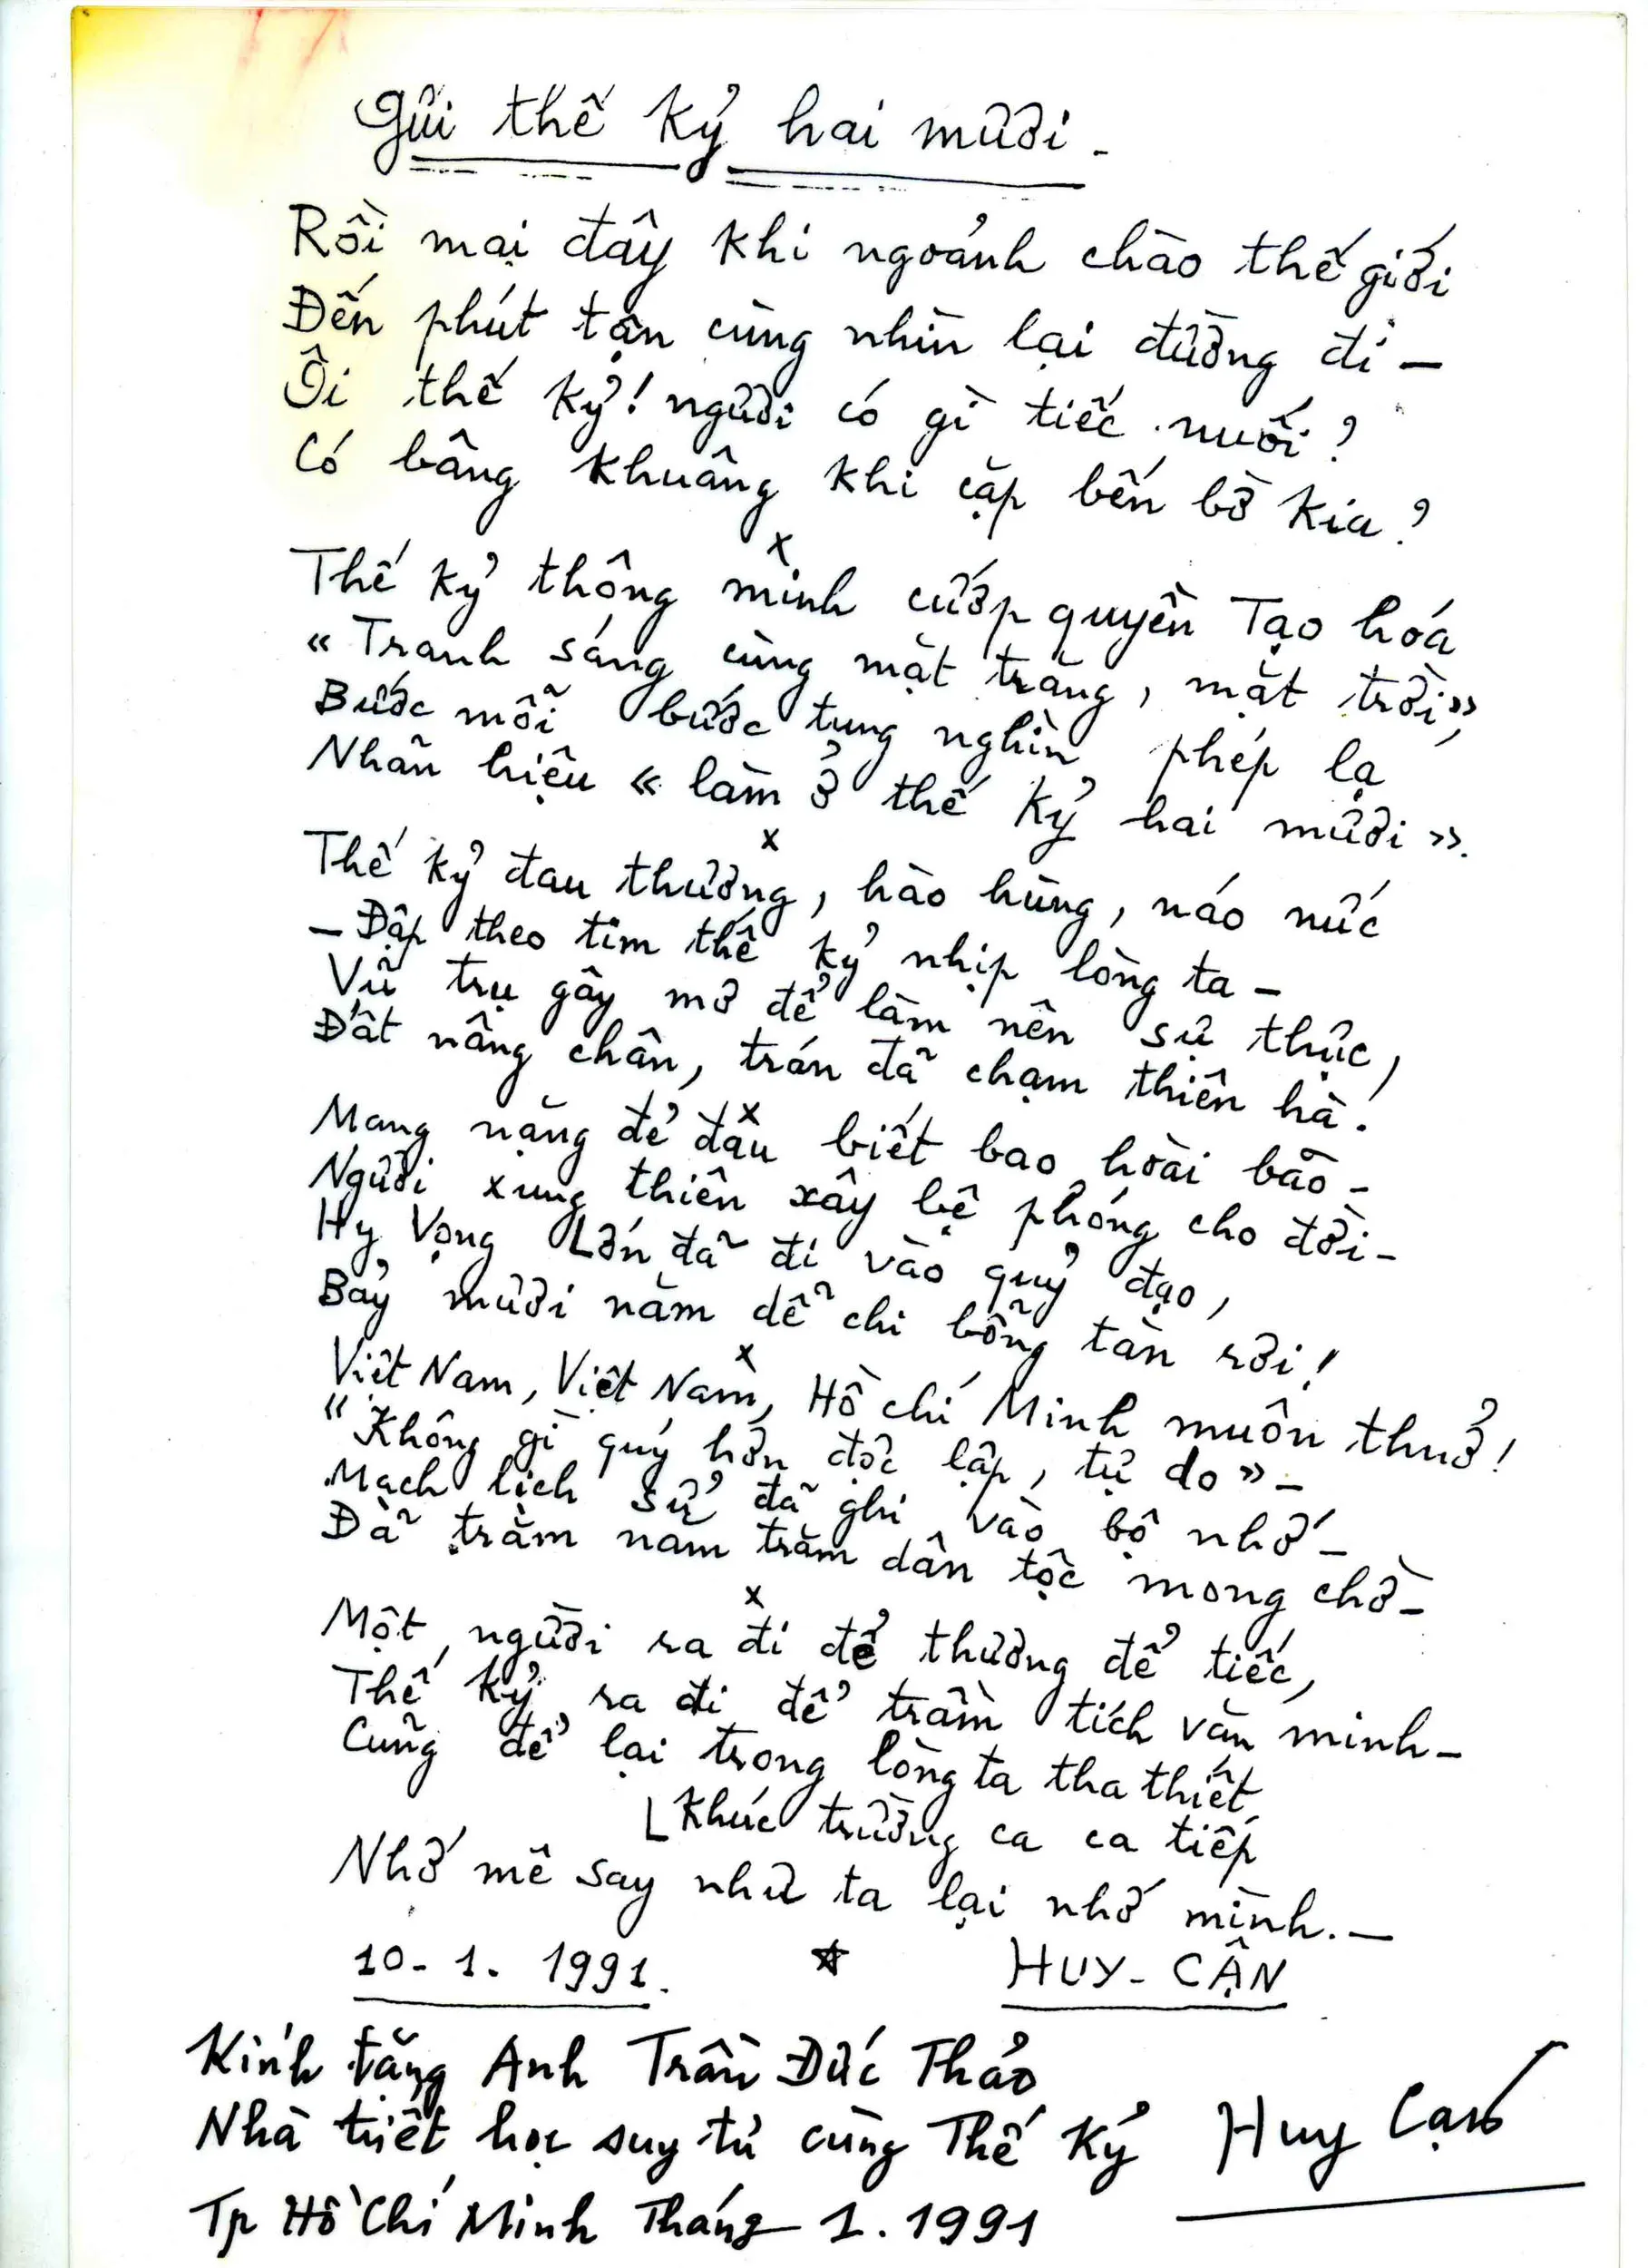 Gửi thế kỷ hai mươi -
Rồi mai đây khi ngoảnh chào thế giới
Đến phút tận cùng nhìn lại đường đi -
Ôi thế kỷ! người có gì tiếc nuối?
Có bâng khuâng khi cặp bến bờ kia?
x
Thế kỷ thông minh cướp quyền Tạo hóa
« Tranh sáng cùng mặt trăng, mặt trời»,
Bước mỗi bước tung nghìn phép lạ
Nhãn hiệu « làm ở thế kỷ hai mươi ».
x
Thế kỷ đau thương, hào hùng, náo nức
- Đập theo tim thế kỷ nhịp lòng ta -
Vũ trụ gây mơ để làm nên sự thực,
Đất nâng chân, trán đã chạm thiên hà!
x
Mang nặng đẻ đau biết bao hoài bão -
Người xung thiên xây bệ phóng cho đời -
Hy Vọng Lớn đã đi vào quỹ đạo,
Bảy mươi năm dễ chi bỗng tàn rơi!
x
Việt Nam, Việt Nam, Hồ chí Minh muôn thuở!
" Không gì quý hơn độc lập, tự do » -
Mạch lịch sử đã ghi vào bộ nhớ -
Đã trăm năm trăm dân tộc mong chờ -
x
Một người ra đi để thương để tiếc,
Thế kỷ ra đi để trầm tích văn minh -
Cũng để lại trong lòng ta tha thiết
Khúc trường ca ca tiếp
Nhớ mê say như ta lại nhớ mình. -
10 - 1. 1991. HUY - CẬN
Kính tặng Anh Trần Đức Thảo
Nhà triết học suy tư cùng Thế Kỷ Huy Cận
Tp Hồ Chí Minh Tháng 1. 1991